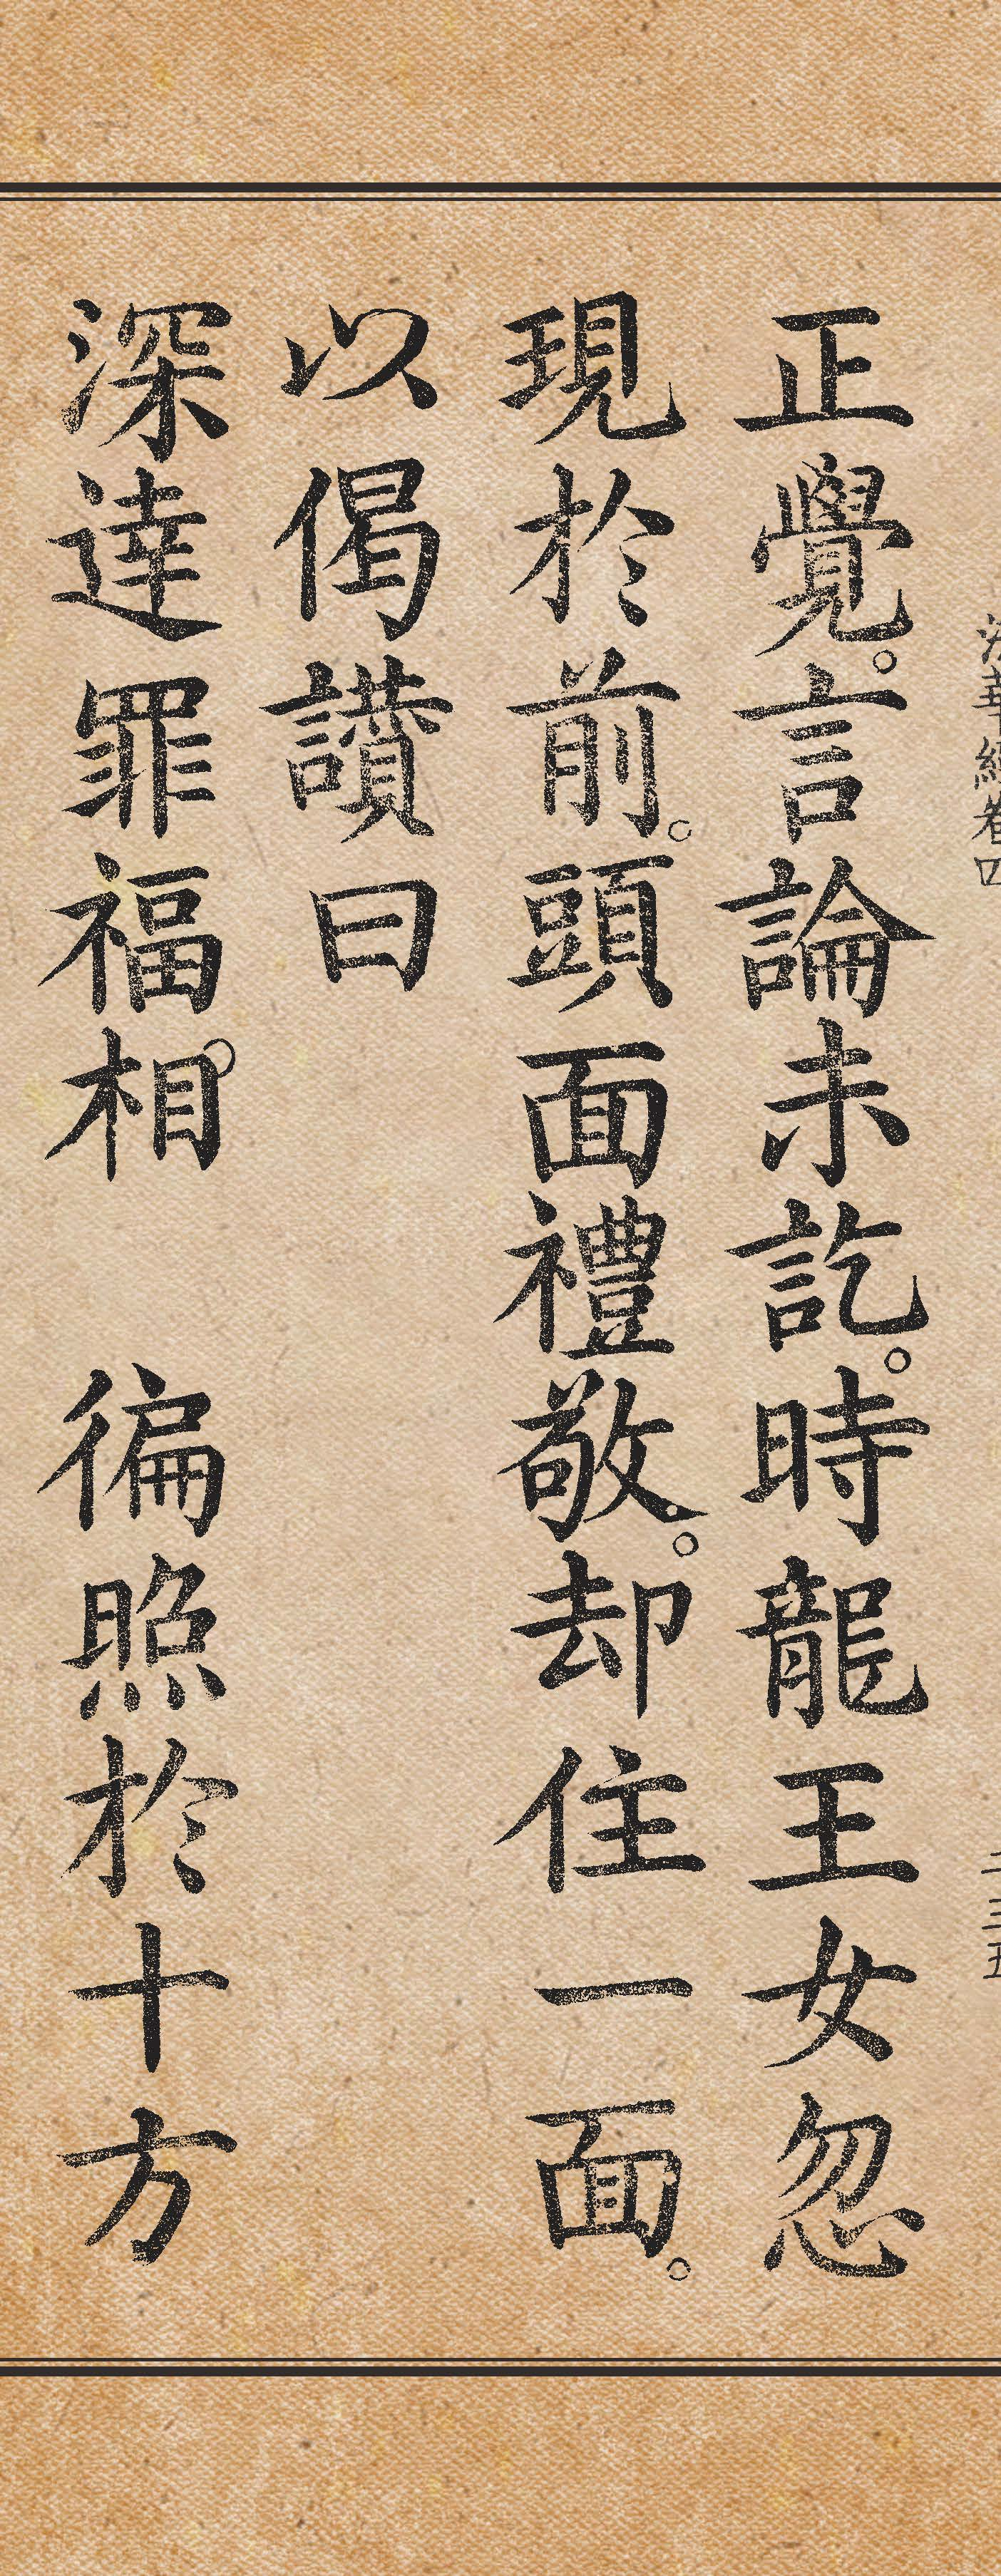 法華經卷四
二三五
正覺。言論未訖。時龍王女忽
現於前。頭面禮敬。却住一面。
以偈讚曰
深達罪福相。 徧照於十方